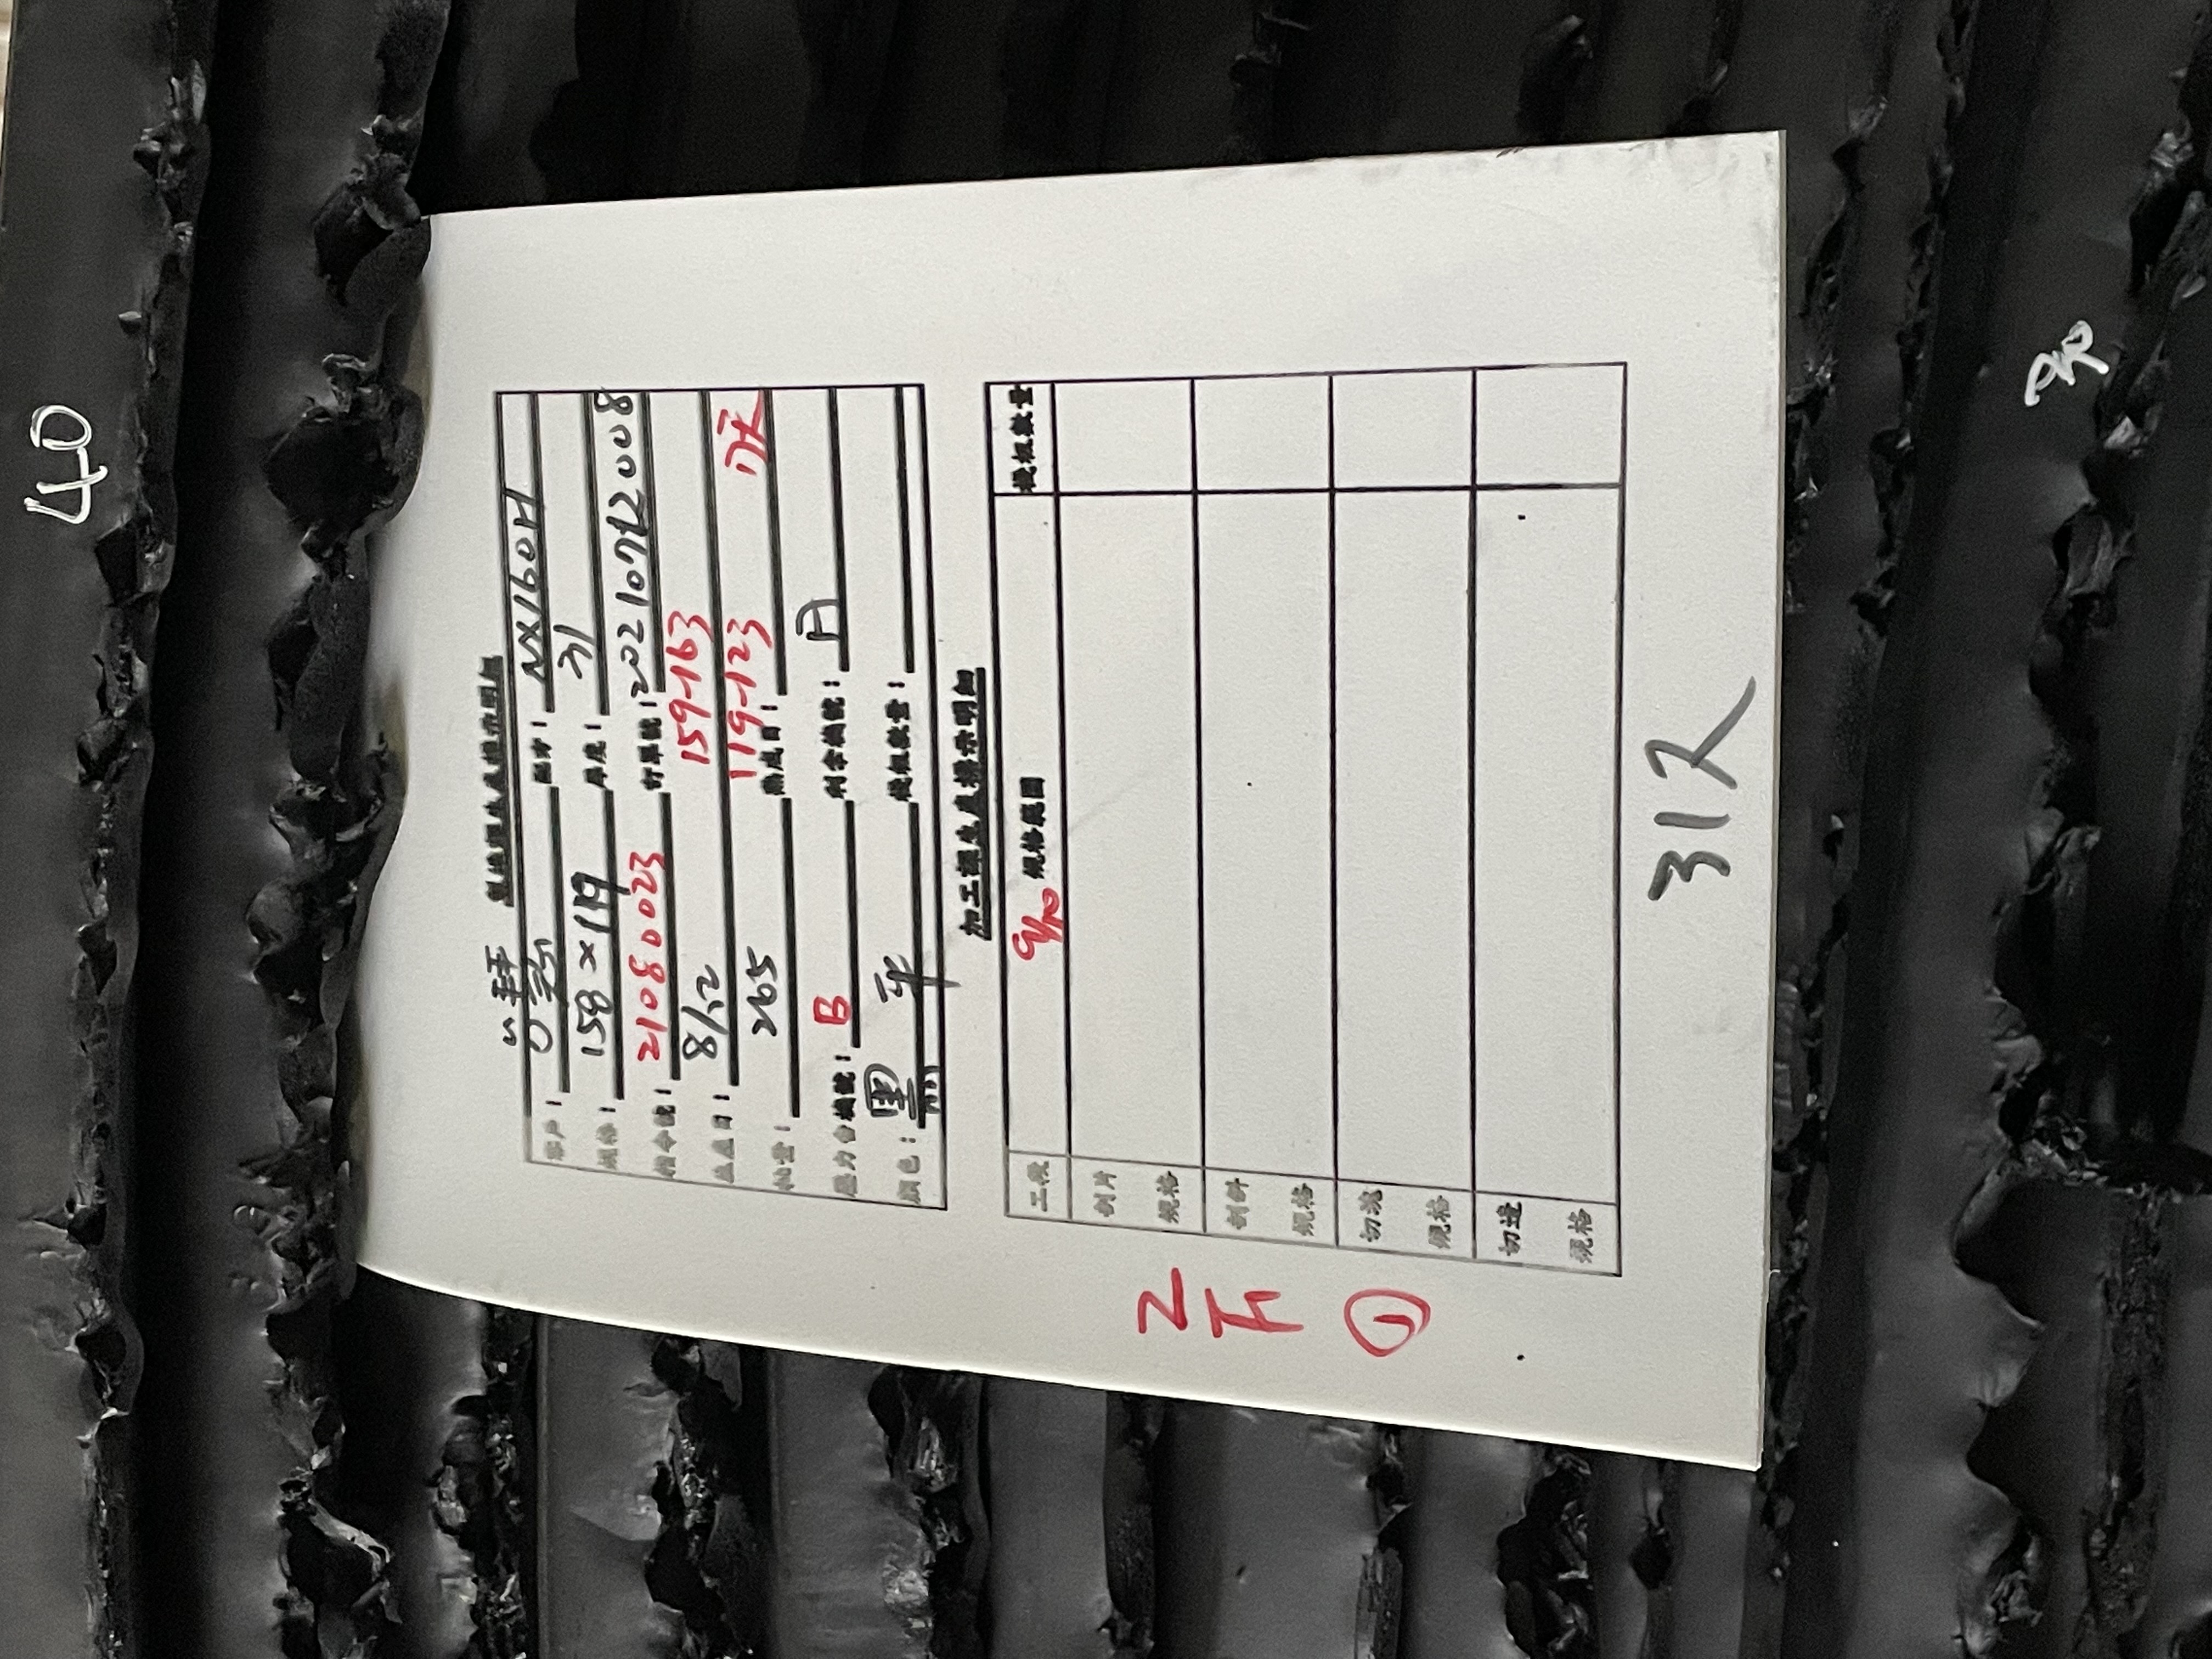 40
製造課生產標示明細
客戶： 配方：NX160H
規格：158×119 厚度：31
指令號：21080023 訂單號：20210712008
生產日：8/12 159-163
119-123 17天
批量：265 熟成日：
壓力台機號：B 利拿機號：A
顏色：黑 平 棧板數量：
加工課生產標示明細
工段 9/10 規格範圍 棧板數量
剖片
規格
剖斜
規格
切塊
規格
切邊
規格
2
下
①
31